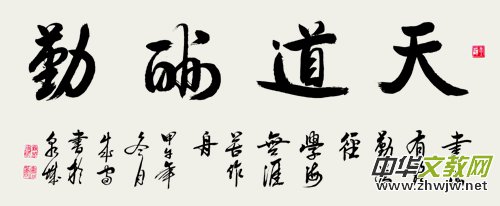 天道酬勤
書山
有路
勤為
徑
學海
無涯
苦作
舟
甲午年
冬月
書於
泉城
中华文教网
www.zhwjw.net